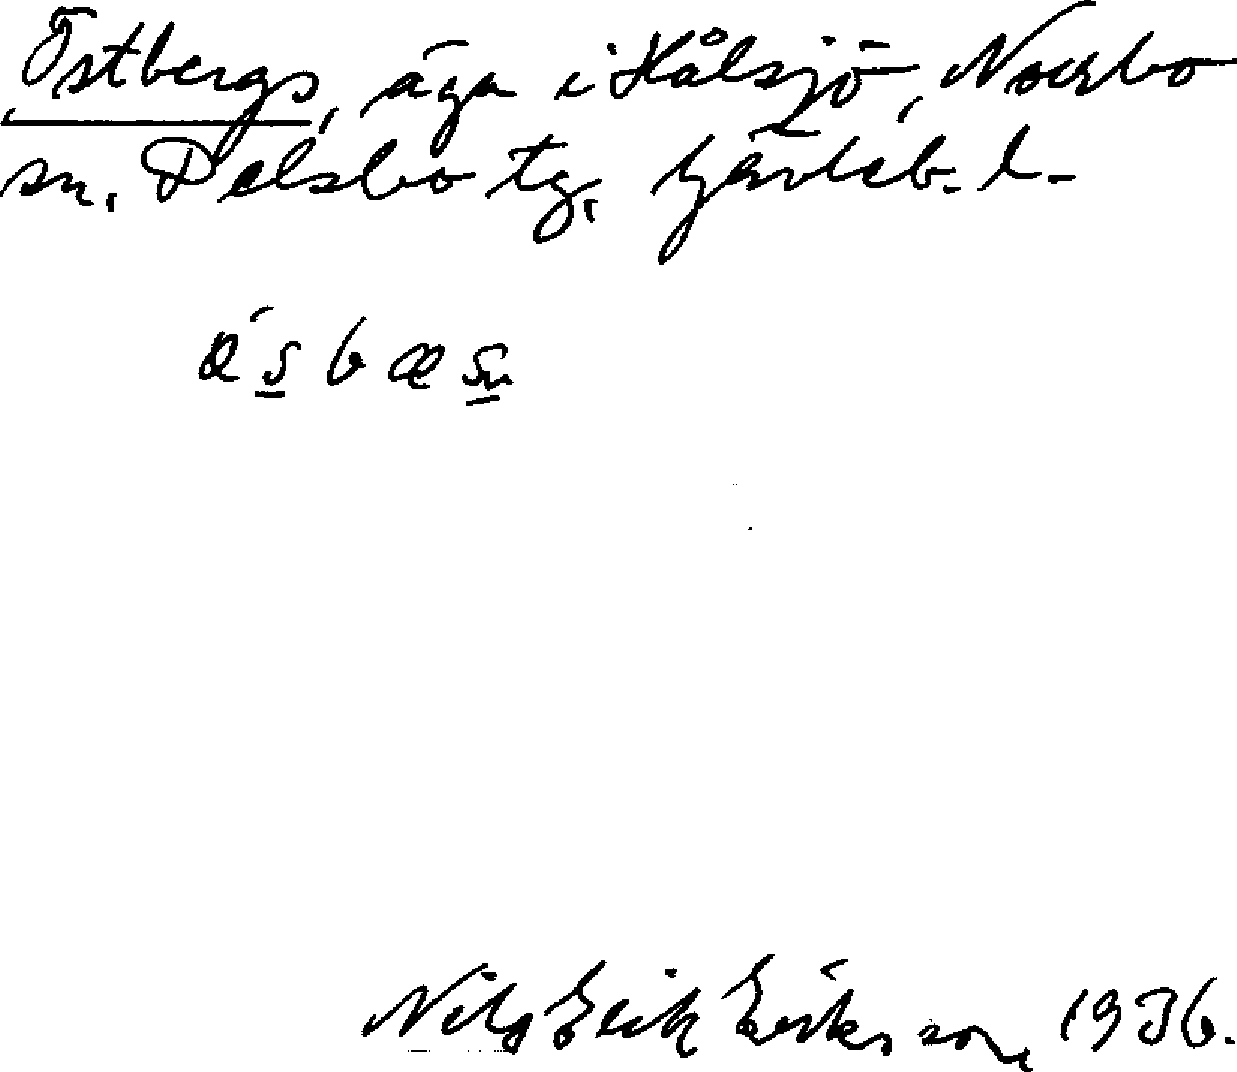 Östbergs, äga i Hålsjö, Norrbo
sn. Delsbo tg. Gävleb. l.
Nils Erik Eriksson, 1936.